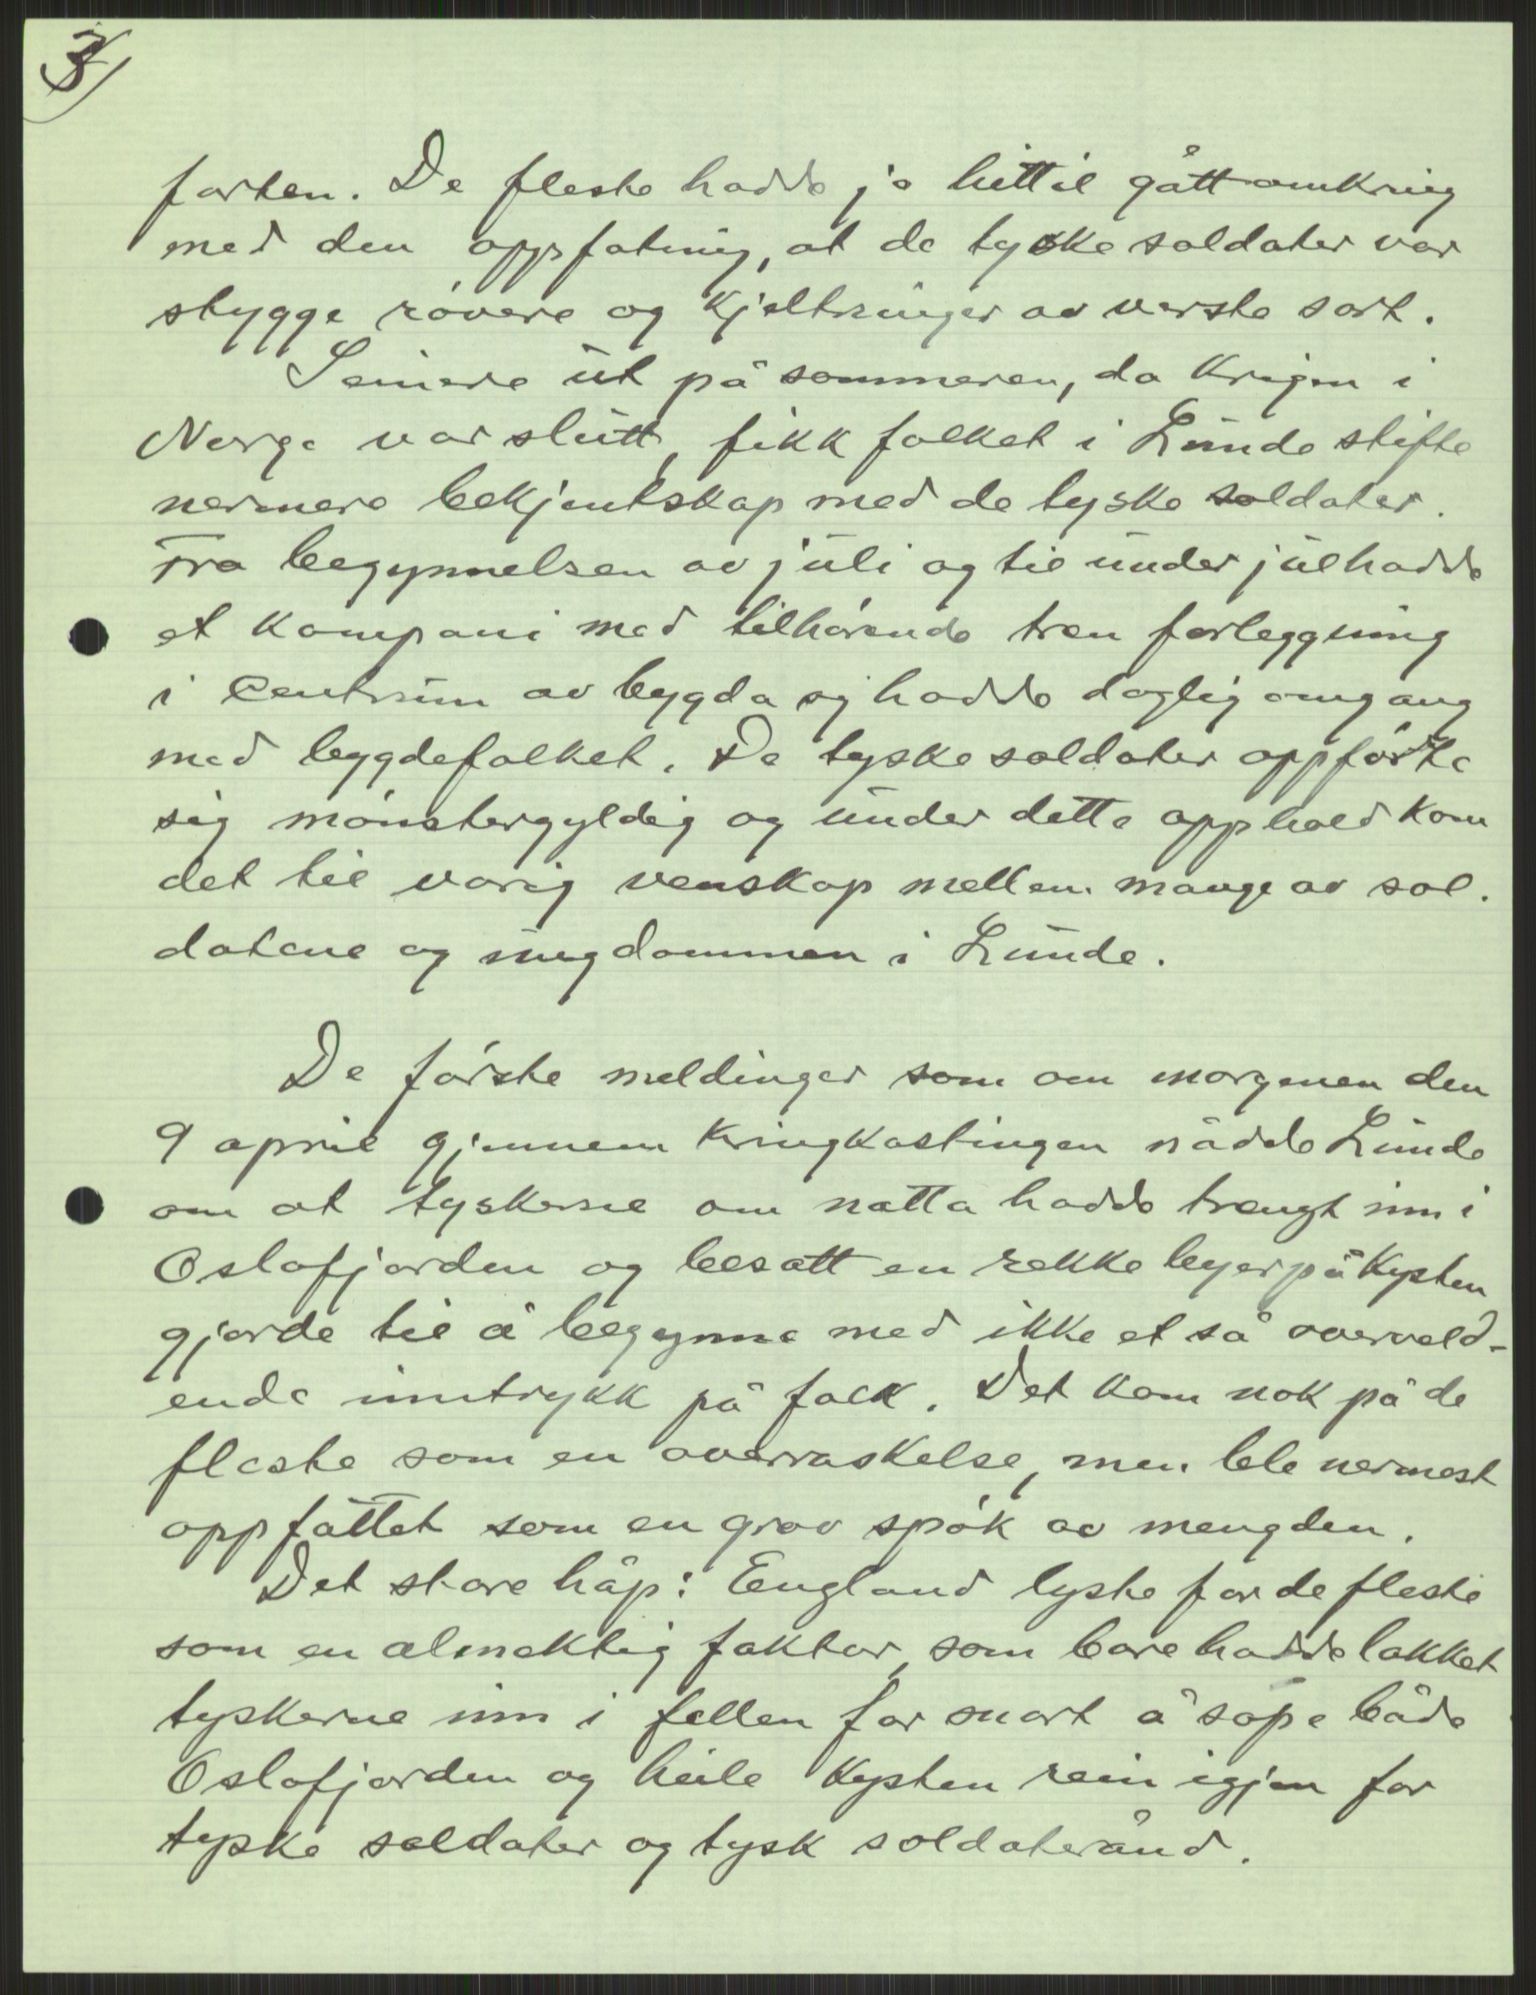 3/
farten. De fleste hadde jo hittil gått omkring
med den oppfatning, at de tyske soldater var
stygge røvere og kjeltringer av verste sort.
Seinere ut på sommeren, da krigen i
Norge var slutt, fikk folket i Lunde stifte
nermere bekjentskap med de tyske soldater.
Fra begynnelsen av juli og til under jul hadde
et kompani med tilhørende tren forleggning
i centrum av bygda og hadde daglig omgang
med bygdefolket. De tyske soldater oppførte
sig mønstergyldig og under dette opphold kom
det til varig venskap mellem mange av sol-
datene og ungdommen i Lunde.
De første meldinger som om morgenen den
9 april gjennem kringkastingen nådde Lunde
om at tyskerne om natta hadde trengt inn i
Oslofjorden og besatt en rekke byer på kysten
gjorde til å begynne med ikke et så overveld-
ende inntrykk på folk. Det kom nok på de
fleste som en overraskelse, men ble nermest
oppfattet som en grov spøk av mengden.
Det store håp: England lyste for de fleste
som en almektig faktor, som bare hadde lokket
tyskerne inn i fellen for snart å sope både
Oslofjorden og heile kysten rein igjen for
tyske soldater og tysk soldaterånd.